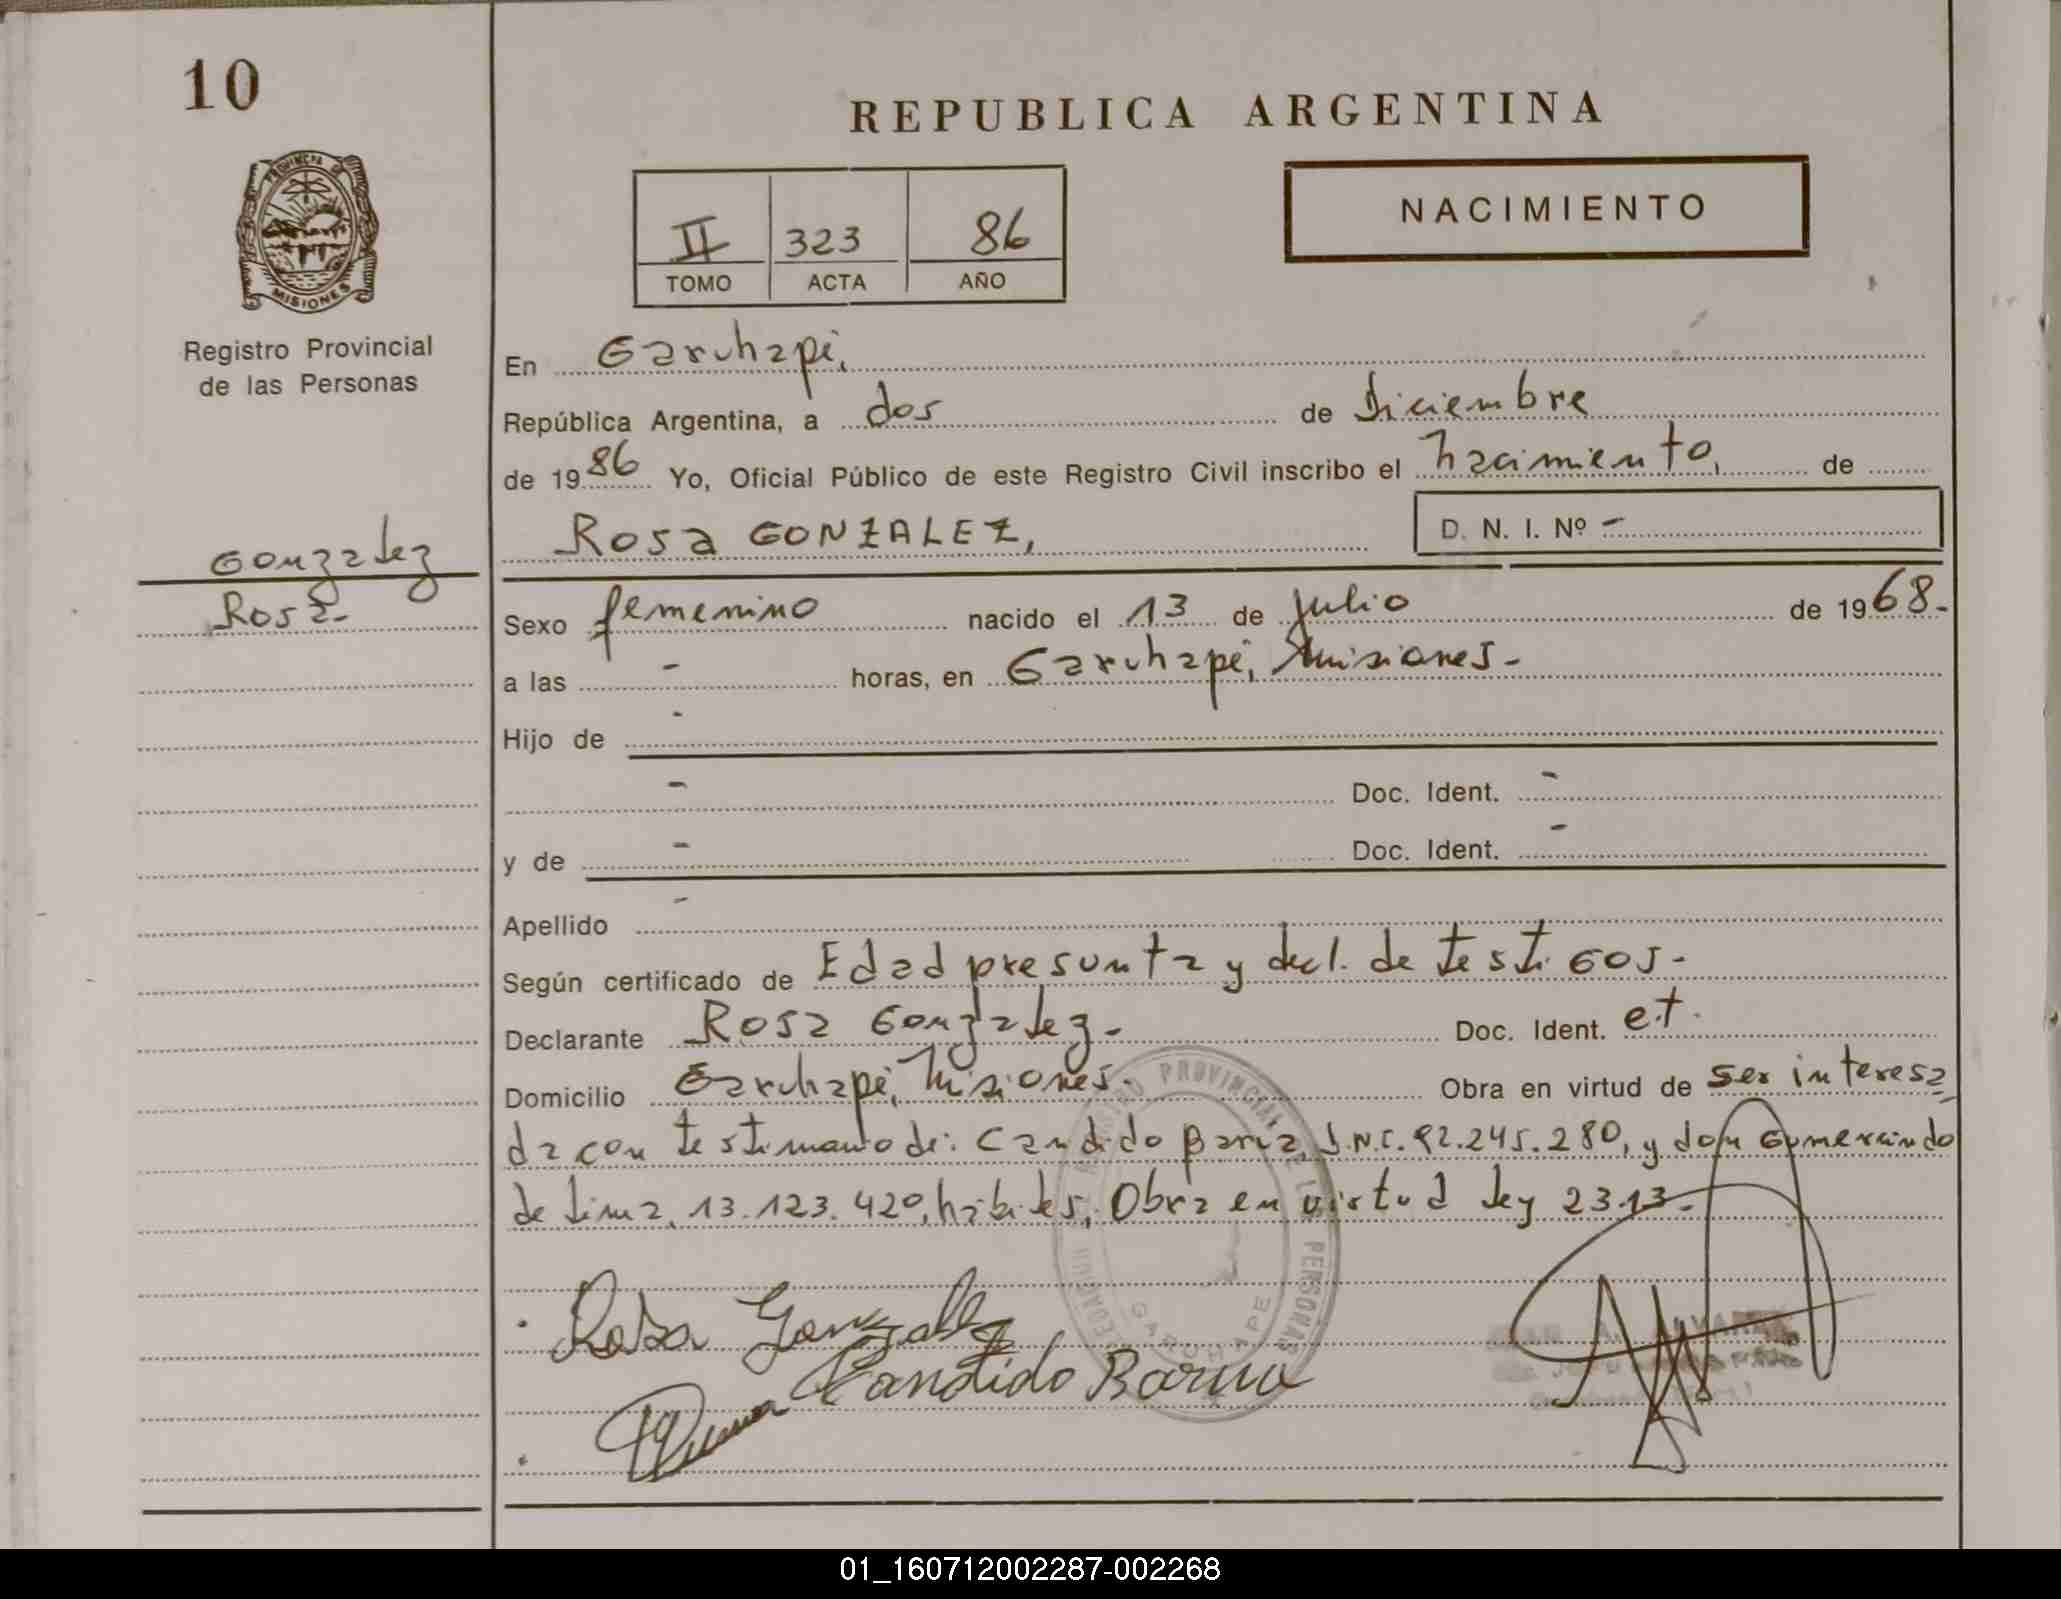 10
REPUBLICA ARGENTINA
PROVINCIA DE
MISIONES
II 323 86
TOMO ACTA AÑO
NACIMIENTO
Registro Provincial
de las Personas
En Garuhapé,
República Argentina, a dos de Diciembre
de 1986 Yo, Oficial Público de este Registro Civil inscribo el nacimiento, de
Rosa GONZALEZ, D. N. I. Nº -
Gonzalez
Rosa.-
Sexo femenino nacido el 13 de julio de 1968.-
a las - horas, en Garuhapé, Misiones.-
Hijo de -
- Doc. Ident. -
y de - Doc. Ident. -
Apellido -
Según certificado de Edad presunta y decl. de testigos.-
Declarante Rosa Gonzalez.- Doc. Ident. e.t.
Domicilio Garuhapé, Misiones.- Obra en virtud de ser interesa
da con testimonio de: Candido Barua, D.N.I. 92.245.280, y don Gumercindo
de Lima, 13.123.420, habiles, Obra en virtud Ley 2313.-
REGISTRO PROVINCIAL DE LAS PERSONAS
GARUHAPE
Rosa Gonzalez
Candido Barua
01_160712002287-002268